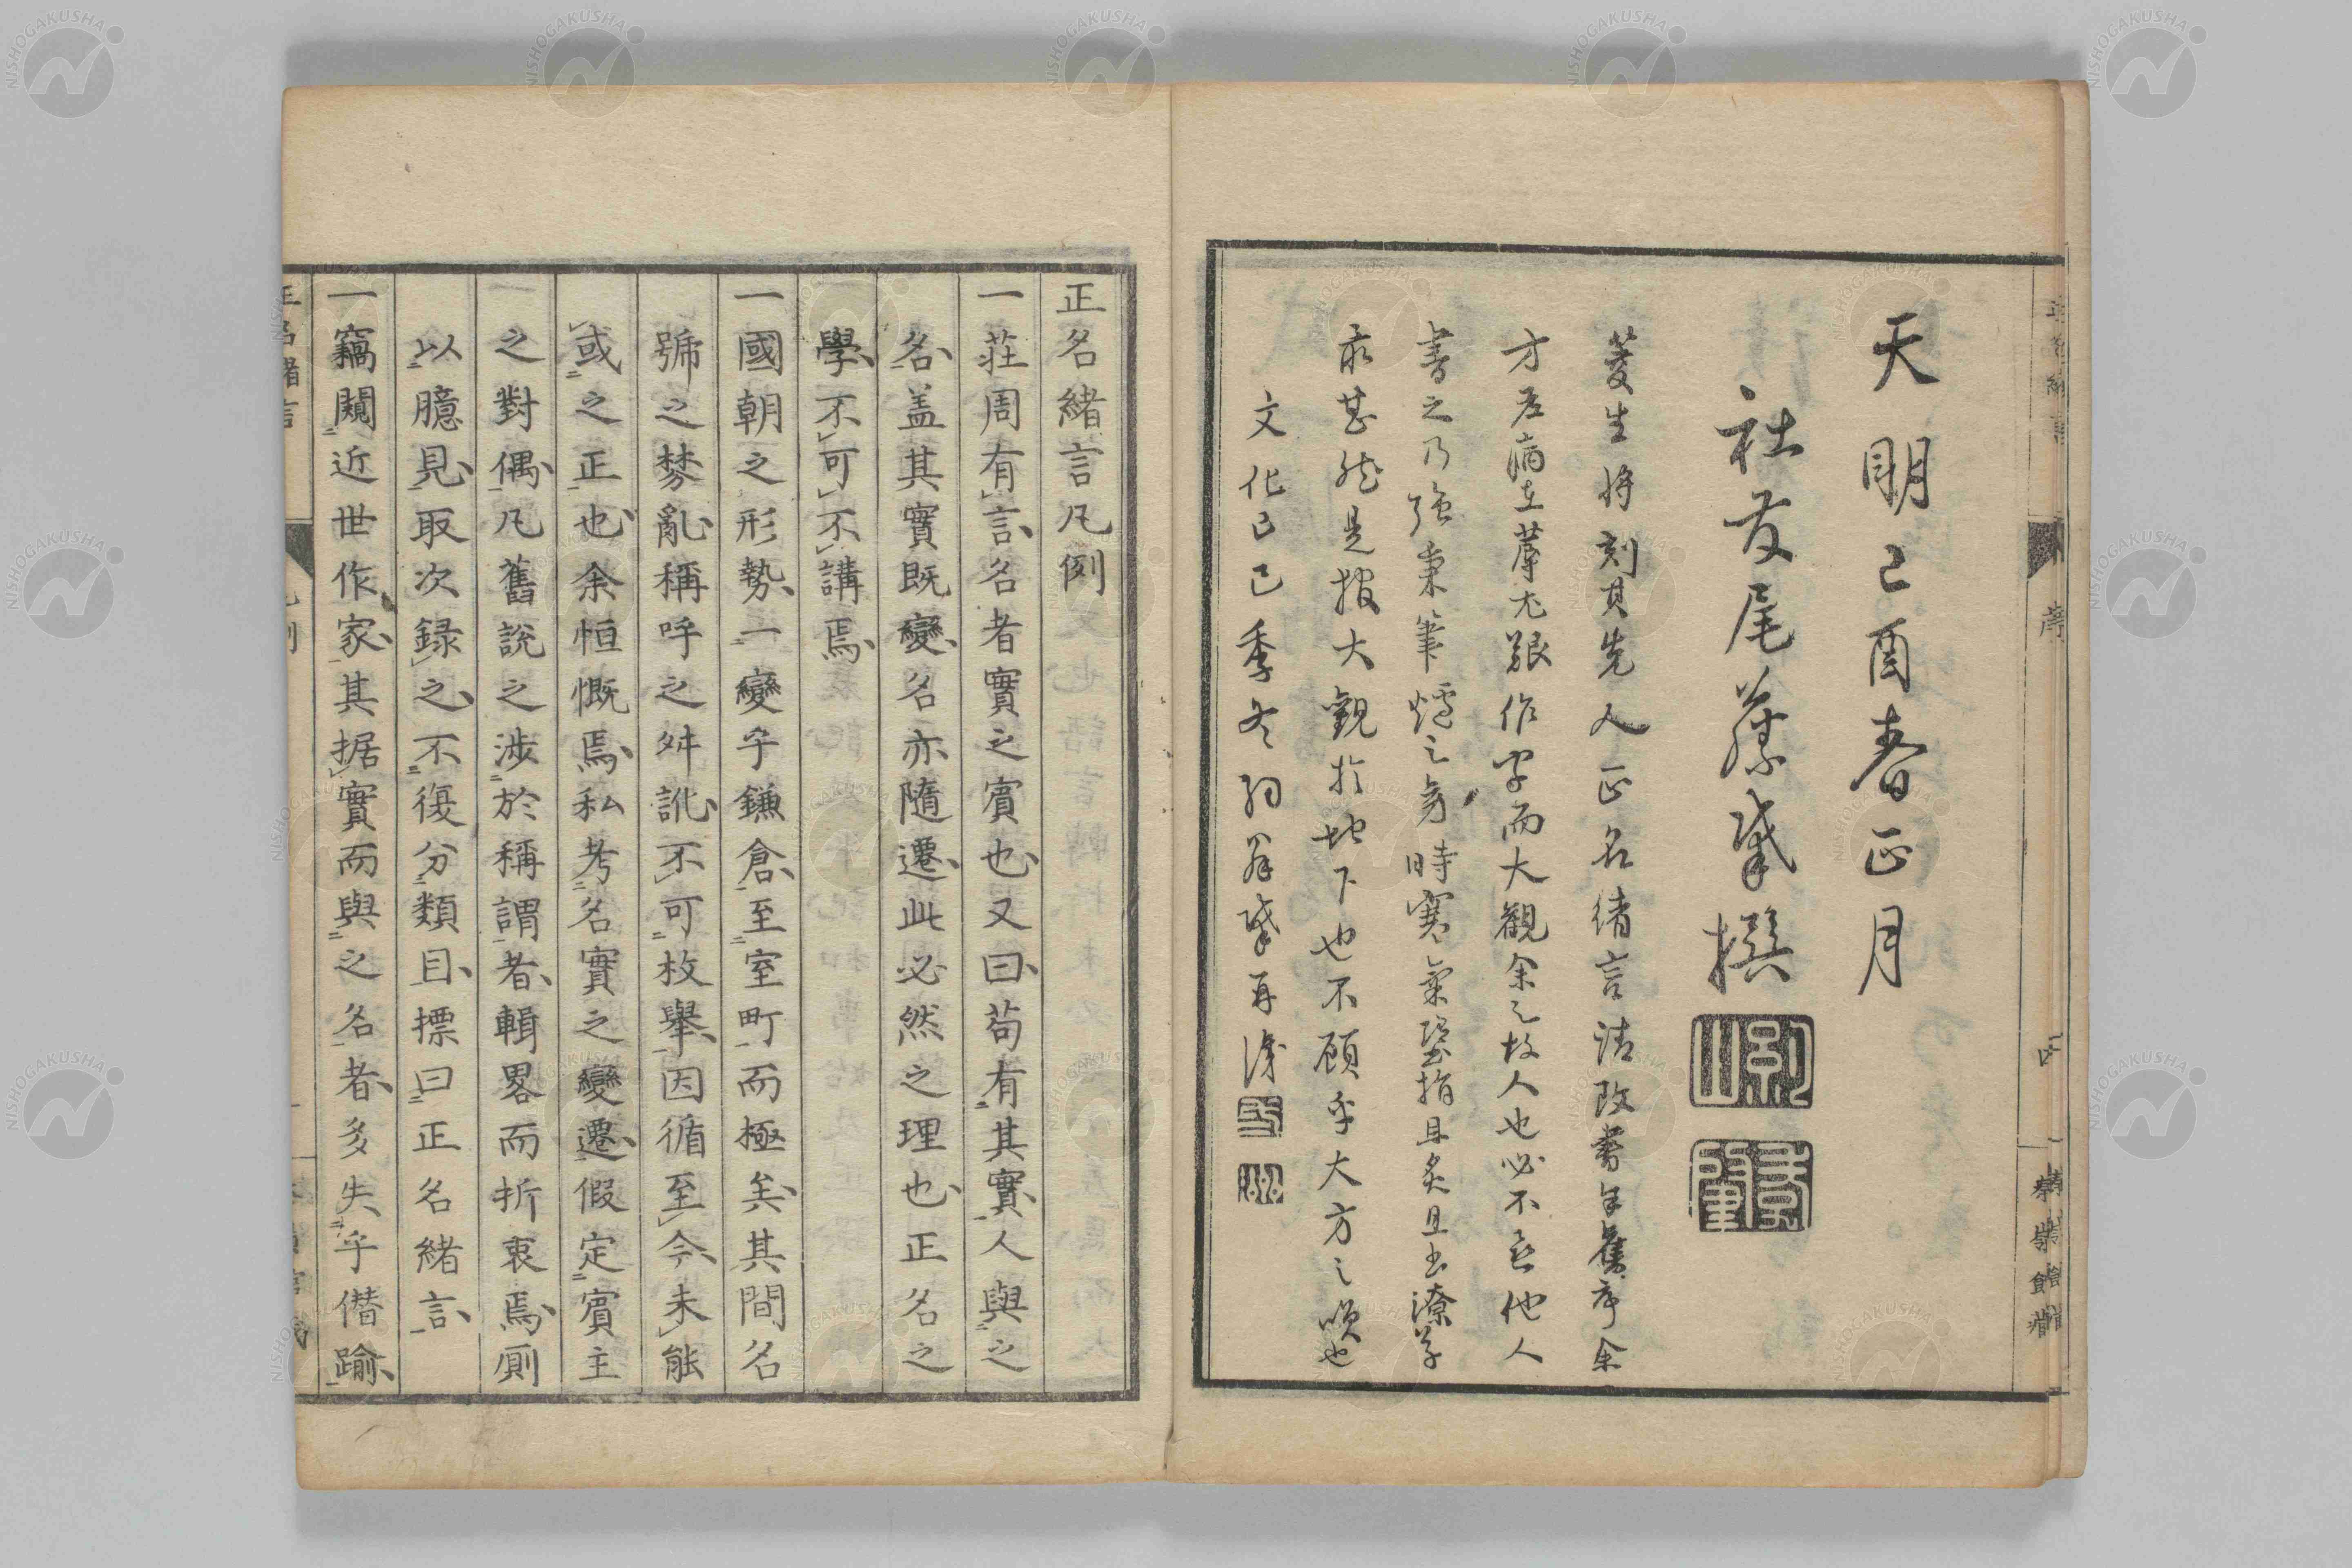 天明己酉春正月
社友尾藤肇撰
菱生将刻其先人正名緒言請改書年舊序余
方左病在蓐尤艱作字而大觀余之故人也必不欲他人
書之乃強秉筆爐之旁時寒氣墜指且炙且書潦草
最甚然是報大觀於地下也不顧乎大方之嗤也
文化己巳季冬 肇再識
正名緒言凡例
一莊周有言名者實之賓也又曰苟有其實人與之
名盖其實既變名亦隨遷此必然之理也正名之
學不可不講焉
一國朝之形勢一變乎鎌倉至室町而極矣其間名
號之棼亂稱呼之舛訛不可枚舉因循至今未能
或之正也余恒慨焉私考名實之變遷假定賓主
之對偶凡舊說之涉於稱謂者輯畧而折衷焉厠
以臆見取次録之不復分類目摽曰正名緒言
一竊閱近世作家其据實而與之名者多失乎僭踰
正名緒言